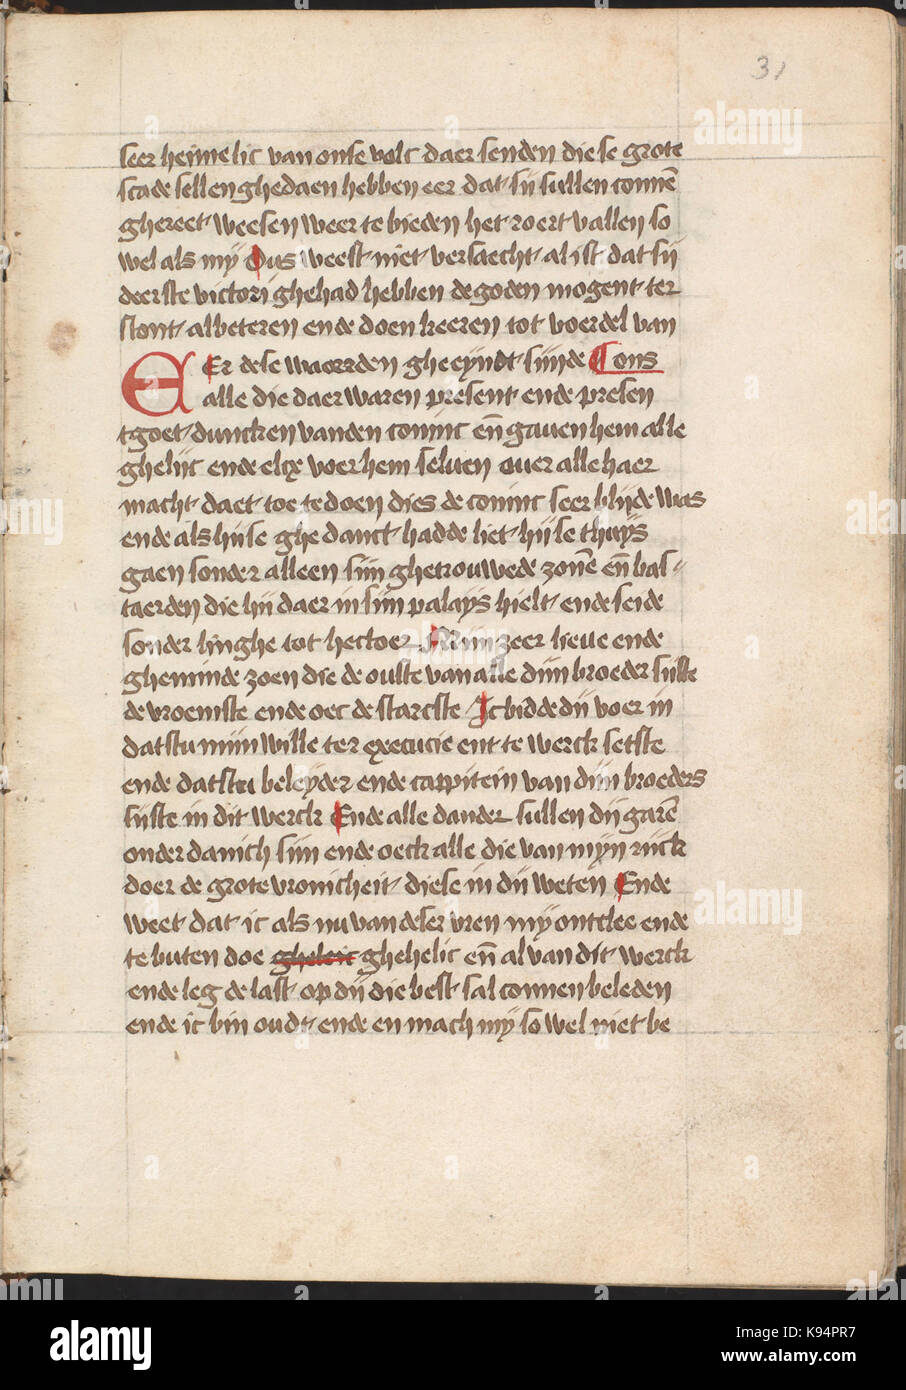 31
seer heimelic van onse volc daer senden die se grote
scade sellen ghedaen hebben eer dat sij sullen connē
ghereet weesen weer te bieden het roert vallen so
wel als mÿ Dus weest niet versaecht al ist dat sij
deerste victori ghehad hebben de goden mogent ter
stont albeteren ende doen keeren tot voerdel van
EEr dese waorrden gheeyndt sijnde ons
alle die daer waren present ende presen
tgoet duncken vanden coninc eñ gauen hem alle
ghelijc ende elcx voer hem seluen ouer alle haer
macht daer toe te doen dies de coninc seer blijde was
ende als hi se ghedanct hadde liet hij se thuÿs
gaen sonder alleen sijn ghetrouwede zonē eñ bas
taerden die hij daer in sijn palaÿs hielt ende seide
sonder linghe tot hectoer Mijn zeer lieue ende
gheminde zoen die de oulte van alle dijn broeder sijste
de vroemste ende oec de starcste Ic bidde dij voer in
datstu mijn wille ter execucie ent te werck setste
ende datstu beleÿder ende cappitein van dijn broeders
sijste in dit werck Ende alle dander sullen dij garē
onderdanich sijn ende oeck alle die van mÿn rijck
doer de grote vromicheit diese in dij weten Ende
weet dat ic als nu van deser vren mÿ ontclee ende
te buten doe ghehelic eñ al van dit werck
ende leg de last op dij die best sal connen beleden
ende ic bin oudt ende en mach mÿ so wel niet be
alamy
Image ID: K94PR7
www.alamy.com